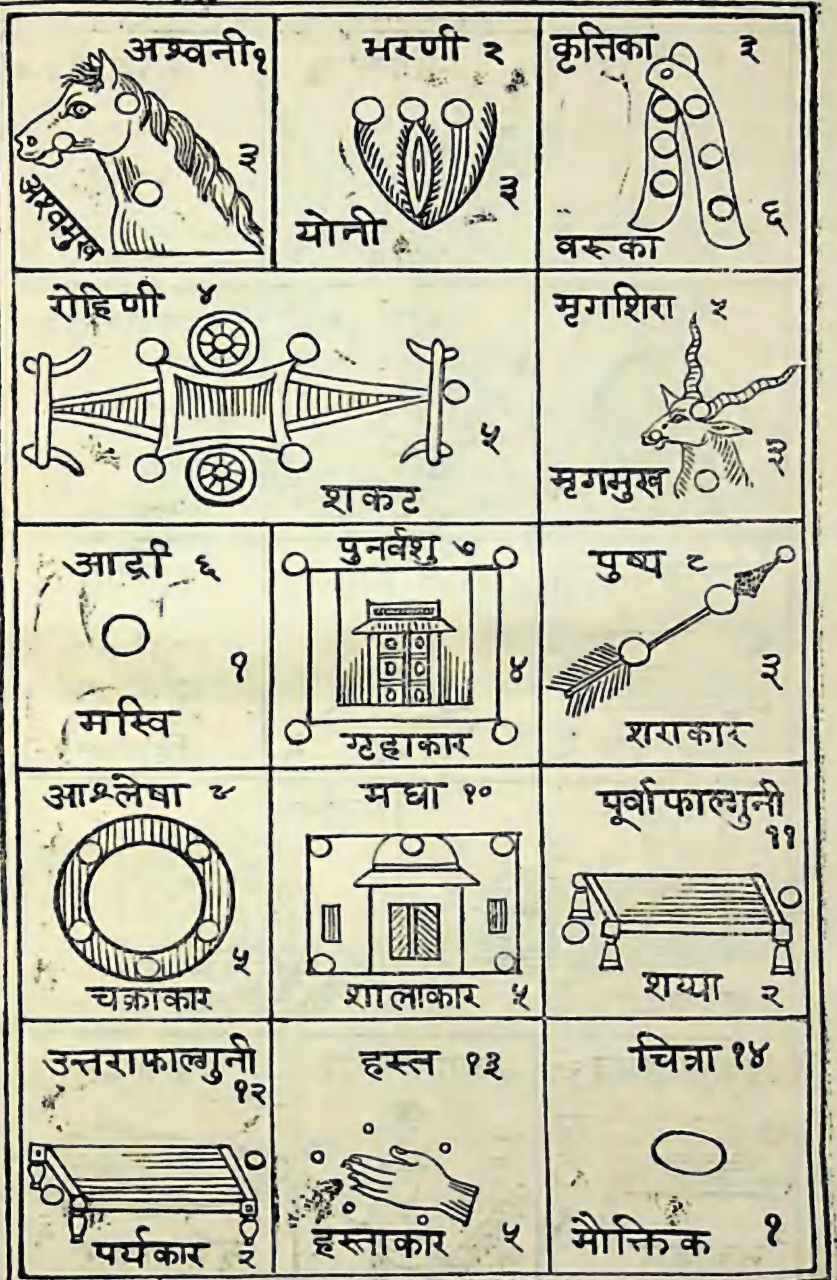 अश्वनी १
३
अश्वमुख
भरणी २
३
योनी
कृत्तिका ३
६
वरूका
रोहिणी ४
५
शकट
मृगशिरा ५
३
मृगमुख
आर्द्रा ६
१
मस्वि
पुनर्वशु ७
४
गृहाकार
पुष्य ८
३
शराकार
आश्लेषा ९
५
चक्राकार
मघा १०
शालाकार ५
पूर्वाफाल्गुनी
११
शय्या २
उत्तराफाल्गुनी
१२
पर्यकार २
हस्त १३
हस्ताकार ५
चित्रा १४
मौक्तिक १